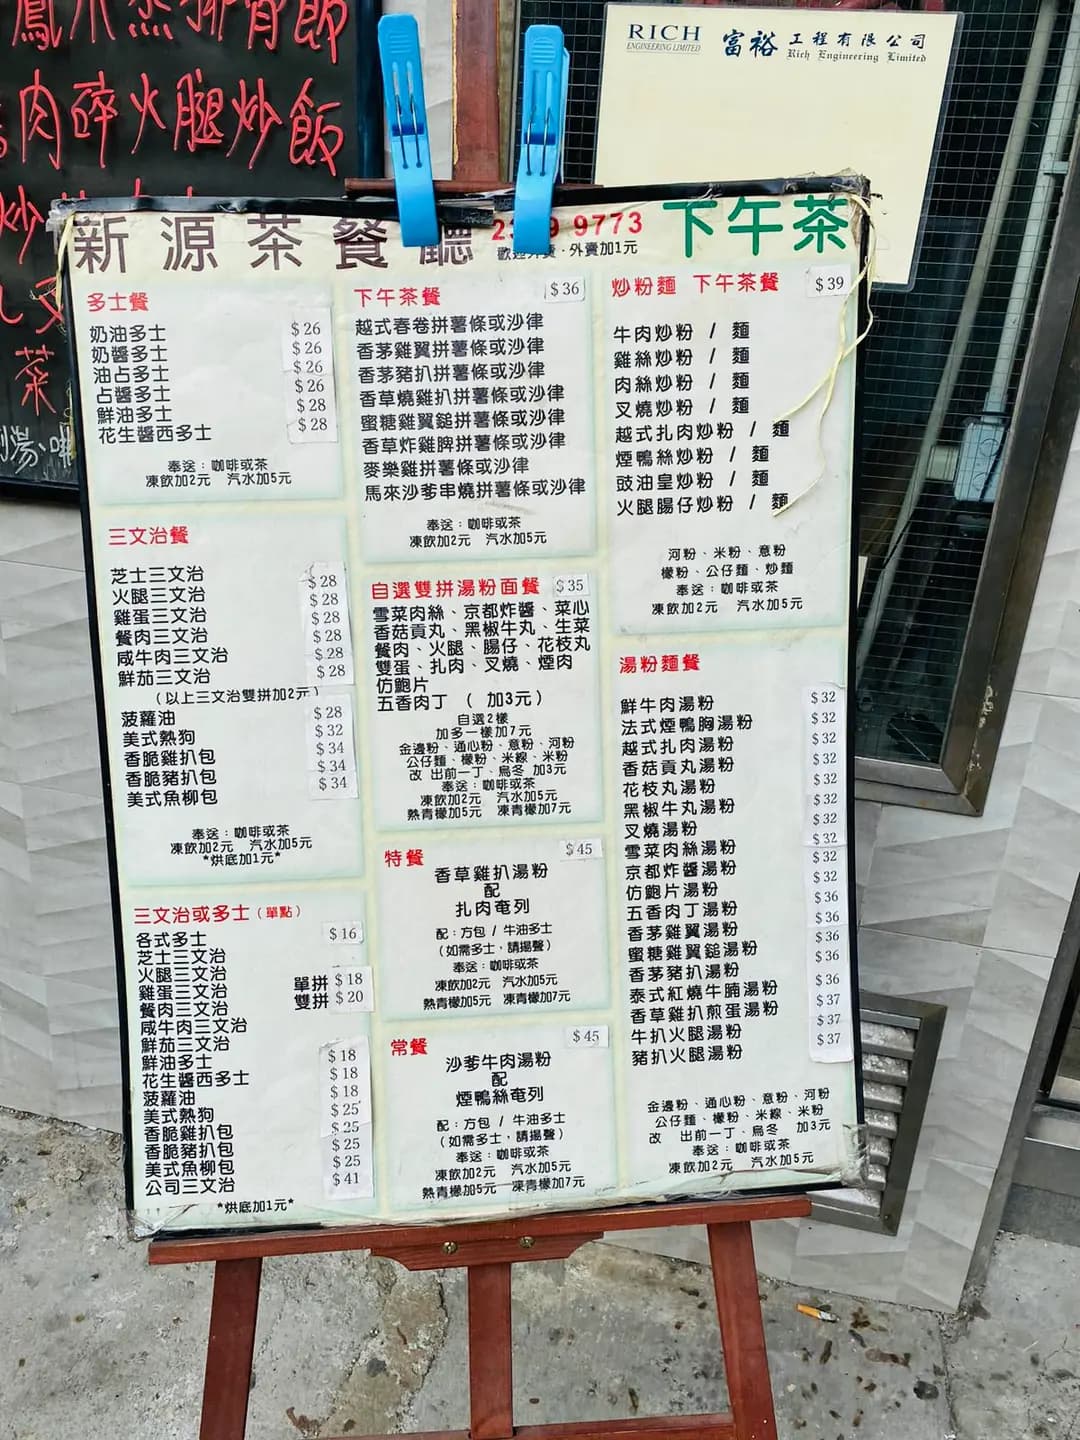 肉碎火腿炒飯
RICH
ENGINEERING LIMITED
富裕 工程有限公司
Rich Engineering Limited
新源茶餐廳
9773
外賣加1元
下午茶
多士餐
奶油多士 $26
奶醬多士 $26
油占多士 $26
占醬多士 $26
鮮油多士 $28
花生醬西多士 $28
奉送：咖啡或茶
凍飲加2元 汽水加5元
三文治餐
芝士三文治 $28
火腿三文治 $28
雞蛋三文治 $28
餐肉三文治 $28
咸牛肉三文治 $28
鮮茄三文治 $28
（以上三文治雙拼加2元）
菠蘿油 $28
美式熱狗 $32
香脆雞扒包 $34
香脆豬扒包 $34
美式魚柳包 $34
奉送：咖啡或茶
凍飲加2元 汽水加5元
*烘底加1元*
三文治或多士（單點）
各式多士 $16
芝士三文治
火腿三文治
雞蛋三文治 單拼 $18
餐肉三文治 雙拼 $20
咸牛肉三文治
鮮茄三文治
鮮油多士 $18
花生醬西多士 $18
菠蘿油 $18
美式熱狗 $25
香脆雞扒包 $25
香脆豬扒包 $25
美式魚柳包 $25
公司三文治 $41
*烘底加1元*
下午茶餐 $36
越式春卷拼薯條或沙律
香茅雞翼拼薯條或沙律
香茅豬扒拼薯條或沙律
香草燒雞扒拼薯條或沙律
蜜糖雞翼鎚拼薯條或沙律
香草炸雞脾拼薯條或沙律
麥樂雞拼薯條或沙律
馬來沙爹串燒拼薯條或沙律
奉送：咖啡或茶
凍飲加2元 汽水加5元
自選雙拼湯粉面餐 $35
雪菜肉絲、京都炸醬、菜心
香菇貢丸、黑椒牛丸、生菜
餐肉、火腿、腸仔、花枝丸
雙蛋、扎肉、叉燒、煙肉
仿鮑片
五香肉丁（加3元）
自選2樣
加多一樣加7元
金邊粉、通心粉、意粉、河粉
公仔麵、檬粉、米線、米粉
改 出前一丁、烏冬 加3元
奉送：咖啡或茶
凍飲加2元 汽水加5元
熱青檬加5元 凍青檬加7元
特餐 $45
香草雞扒湯粉
配
扎肉奄列
配：方包 / 牛油多士
（如需多士，請揚聲）
奉送：咖啡或茶
凍飲加2元 汽水加5元
熱青檬加5元 凍青檬加7元
常餐 $45
沙爹牛肉湯粉
配
煙鴨絲奄列
配：方包 / 牛油多士
（如需多士，請揚聲）
奉送：咖啡或茶
凍飲加2元 汽水加5元
熱青檬加5元 凍青檬加7元
炒粉麵 下午茶餐 $39
牛肉炒粉 / 麵
雞絲炒粉 / 麵
肉絲炒粉 / 麵
叉燒炒粉 / 麵
越式扎肉炒粉 / 麵
煙鴨絲炒粉 / 麵
豉油皇炒粉 / 麵
火腿腸仔炒粉 / 麵
河粉、米粉、意粉
檬粉、公仔麵、炒麵
奉送：咖啡或茶
凍飲加2元 汽水加5元
湯粉麵餐
鮮牛肉湯粉 $32
法式煙鴨胸湯粉 $32
越式扎肉湯粉 $32
香菇貢丸湯粉 $32
花枝丸湯粉 $32
黑椒牛丸湯粉 $32
叉燒湯粉 $32
雪菜肉絲湯粉 $32
京都炸醬湯粉 $32
仿鮑片湯粉 $32
五香肉丁湯粉 $36
香茅雞翼湯粉 $36
蜜糖雞翼鎚湯粉 $36
香茅豬扒湯粉 $36
泰式紅燒牛腩湯粉 $36
香草雞扒煎蛋湯粉 $37
牛扒火腿湯粉 $37
豬扒火腿湯粉 $37
金邊粉、通心粉、意粉、河粉
公仔麵、檬粉、米線、米粉
改 出前一丁、烏冬 加3元
奉送：咖啡或茶
凍飲加2元 汽水加5元